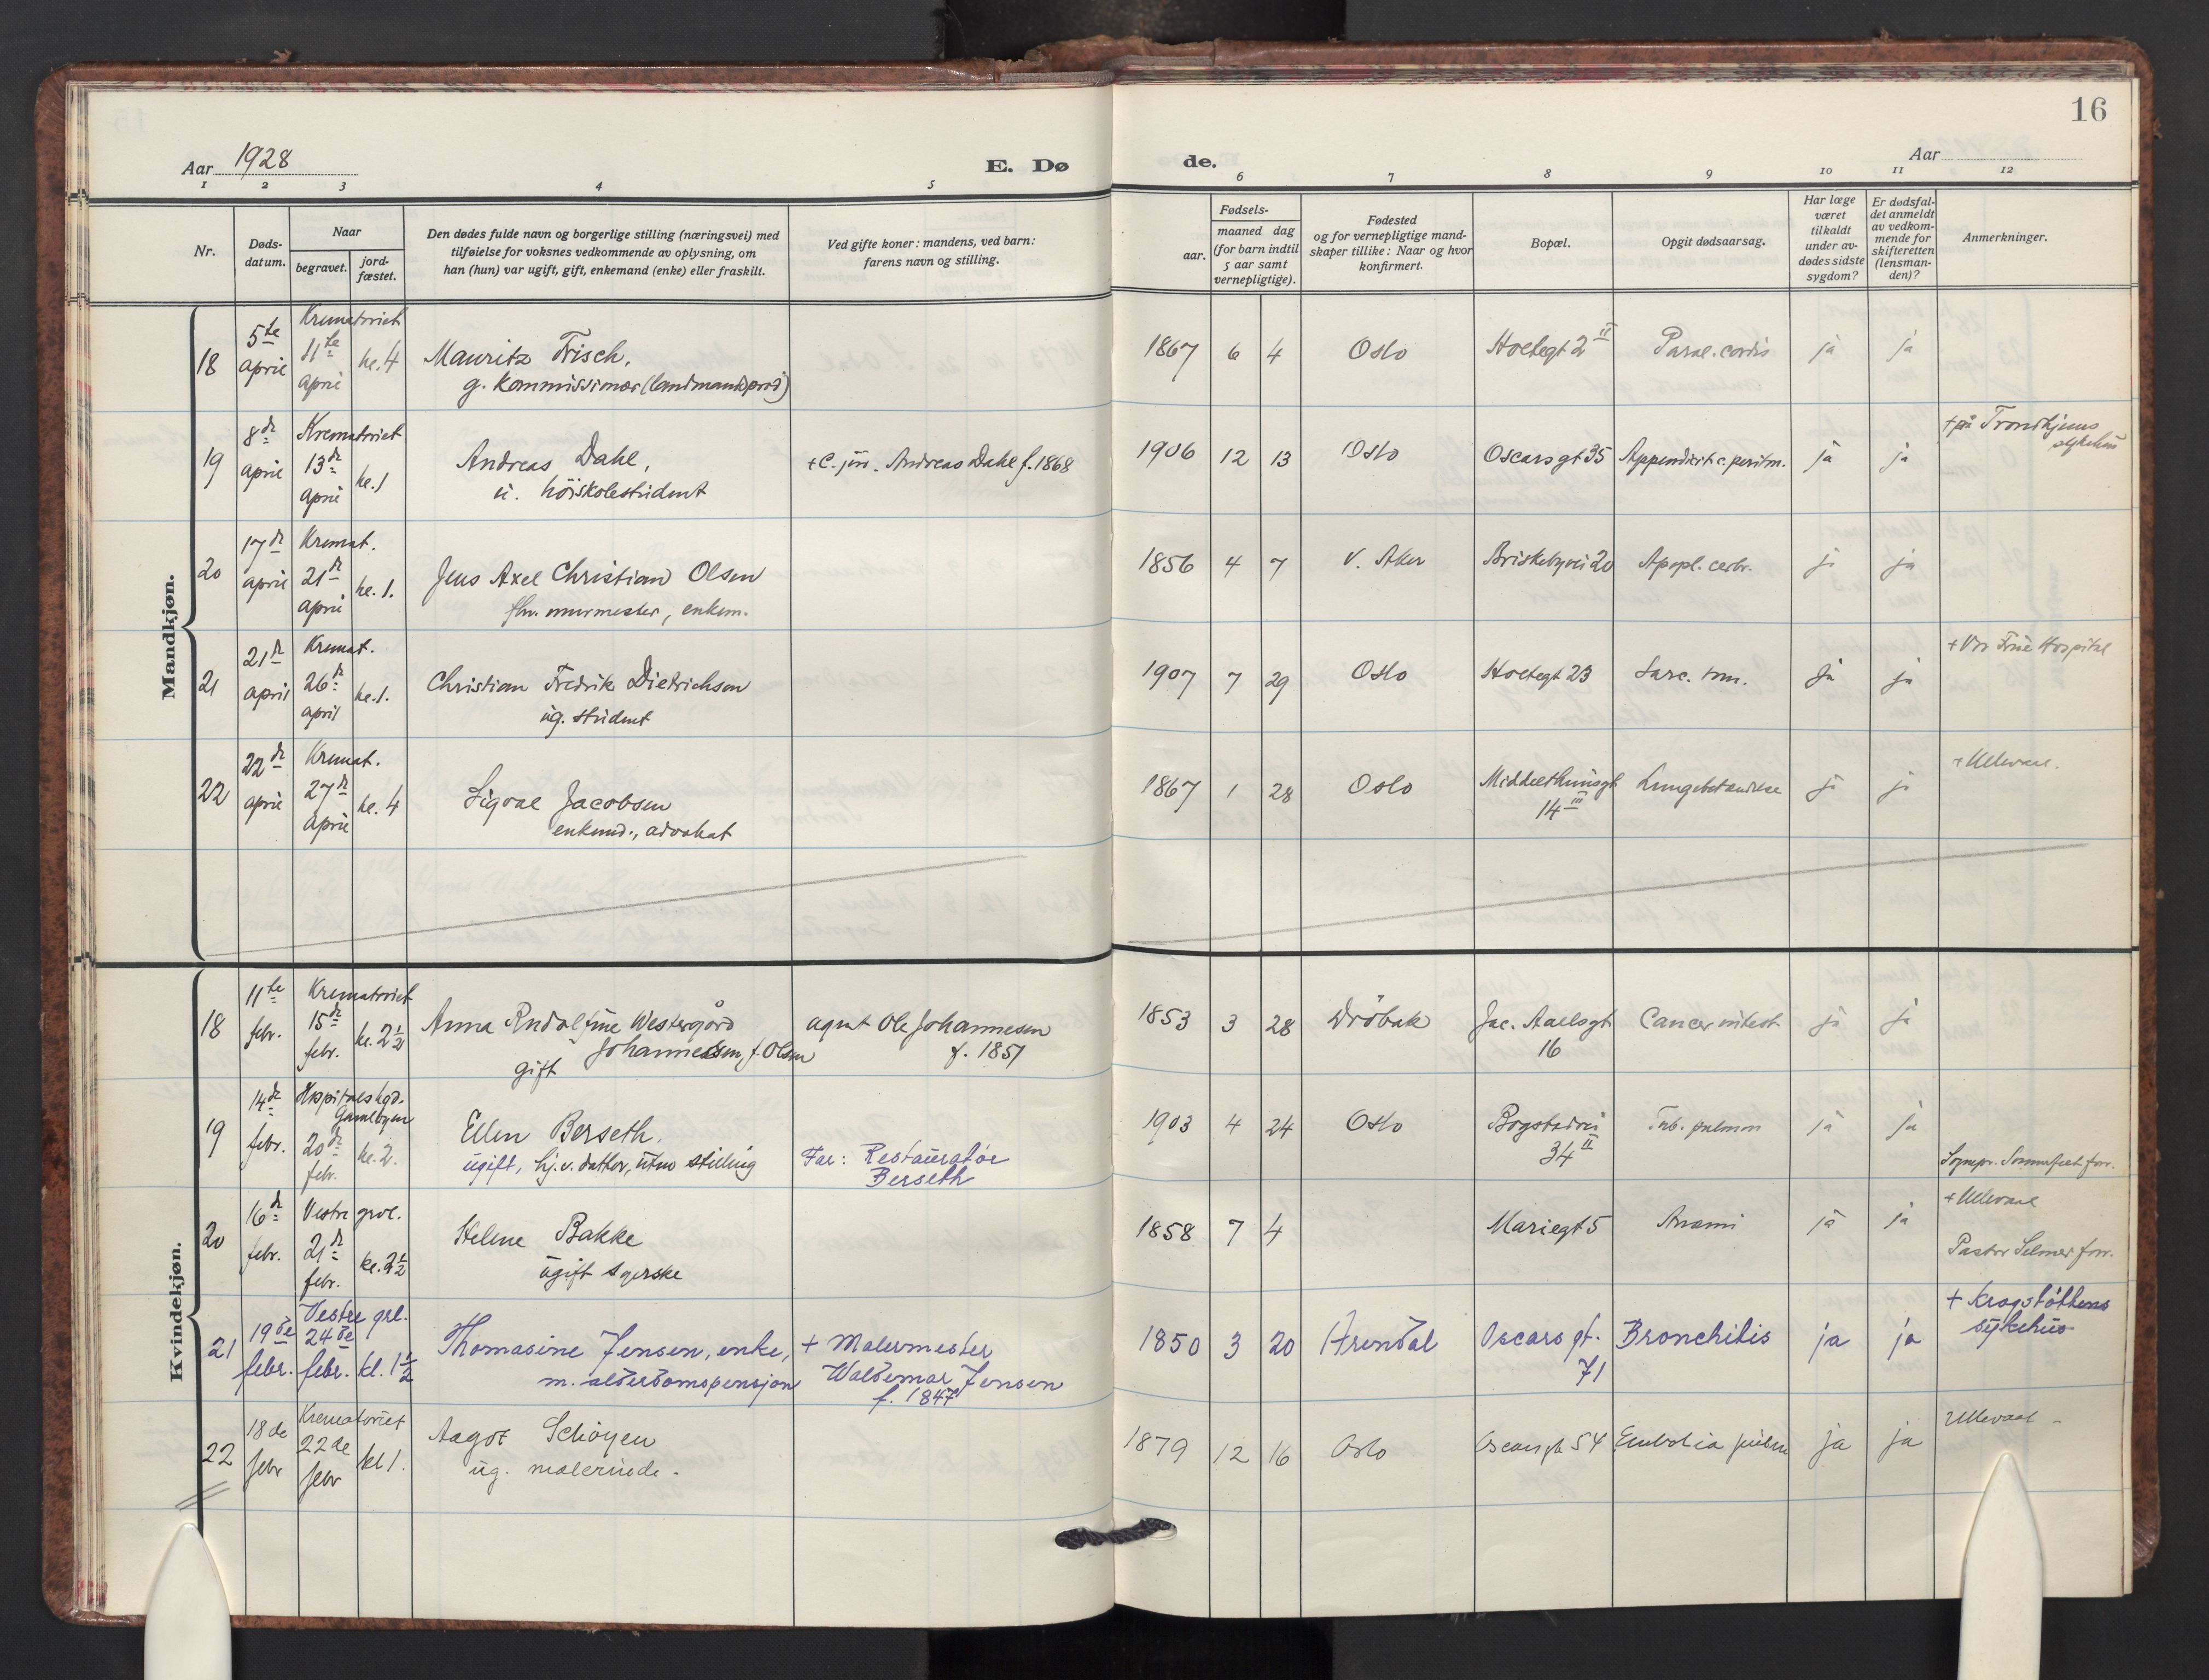 16
Aar 1928
E. Dø
de.
Aar
1 2 3 4 5 6 7 8 9 10 11 12
Nr.
Døds-
datum.
Naar
begravet.
jord-
fæstet.
Den dødes fulde navn og borgerlige stilling (næringsvei) med
tilføielse for voksnes vedkommende av oplysning, om
han (hun) var ugift, gift, enkemand (enke) eller fraskilt.
Ved gifte koner: mandens, ved barn:
farens navn og stilling.
Fødsels-
aar.
maaned dag
(for barn indtil
5 aar samt
vernepligtige).
Fødested
og for vernepligtige mand-
skaper tillike: Naar og hvor
konfirmert.
Bopæl.
Opgit dødsaarsag.
Har læge
været
tilkaldt
under av-
dødes sidste
sygdom?
Er dødsfal-
det anmeldt
av vedkom-
mende for
skifteretten
(lensman-
den)?
Anmerkninger.
Mandkjøn.
18
5te april
Krematoriet
11te april
kl. 4
Mauritz Frisch,
g. kommissionær (landmandsprod)
1867 6 4 Oslo
Holtegt 2 II
Paral. cordis
ja ja
19
8de april
Krematoriet
13de april
kl. 1
Andreas Dahl,
u. höiskolestudent
+ C. jür. Andreas Dahl f. 1868
1906 12 13 Oslo
Oscarsgt 35
Appendicit c. peritm.
ja ja
+ på Trondhjems
sykehus
20
17de april
Kremat.
21de april
kl. 1.
Jens Axel Christian Olsen
fhv. murmester, enkem.
1856 4 7 V. Aker
Briskebyvei 20
Apopl. cerbr.
ja ja
21
21de april
Kremat.
26de april
kl. 1.
Christian Fredrik Dietrichson
ug. student
1907 7 29 Oslo
Holtegt 23
Sarc.
ja ja
+ Vor Frue Hospital
22
22de april
Kremat.
27de april
kl. 4
Sigval Jacobsen
enkmd., advokat
1867 1 28 Oslo
Middelthunsgt
14 III
Lungebetændelse
ja ja
+ Ullevaal.
Kvindekjøn.
18
11te febr.
Krematoriet
15de febr.
kl. 2 1/2
Anna Rudolfine Westergård
Johannessen, f. Olsen
gift
agent Ole Johannesen
f. 1851
1853 3 28 Dröbak
Jac. Aallsgt
16
Cancer intest
ja ja
19
14de febr.
Hospitalskgd.
Gamlebyen
20de febr.
kl. 2.
Ellen Berseth.
ugift, hj.v. datter, uten stilling
Far: Restauratør
Berseth
1903 4 24 Oslo
Bogstadvei
34 II
Tub. pulmon
ja ja
Sognepr. Sommerfelt forr.
20
16de febr.
Vestre grvl.
21de febr.
kl. 2 1/2
Helene Bakke
ugift syerske
1858 7 4
Mariegt 5
Anæmi
ja ja
+ Ullevaal
Pastor Selmer forr.
21
19de febr.
Vestre grl.
24de febr.
kl. 1 1/2
Thomasine Jensen, enke,
m. alderdomspensjon
+ Malermester
Waldemar Jensen
f. 1847
1850 3 20 Arendal
Oscars gt.
71
Bronchitis
ja ja
+ Krogstøttens
sykehus
22
18de febr
Krematoriet
22de febr
kl 1.
Aagot Schöyen
ug. malerinde.
1879 12 16 Oslo
Oscars gt 54
Embolia pulm
ja ja
Ullevaal -